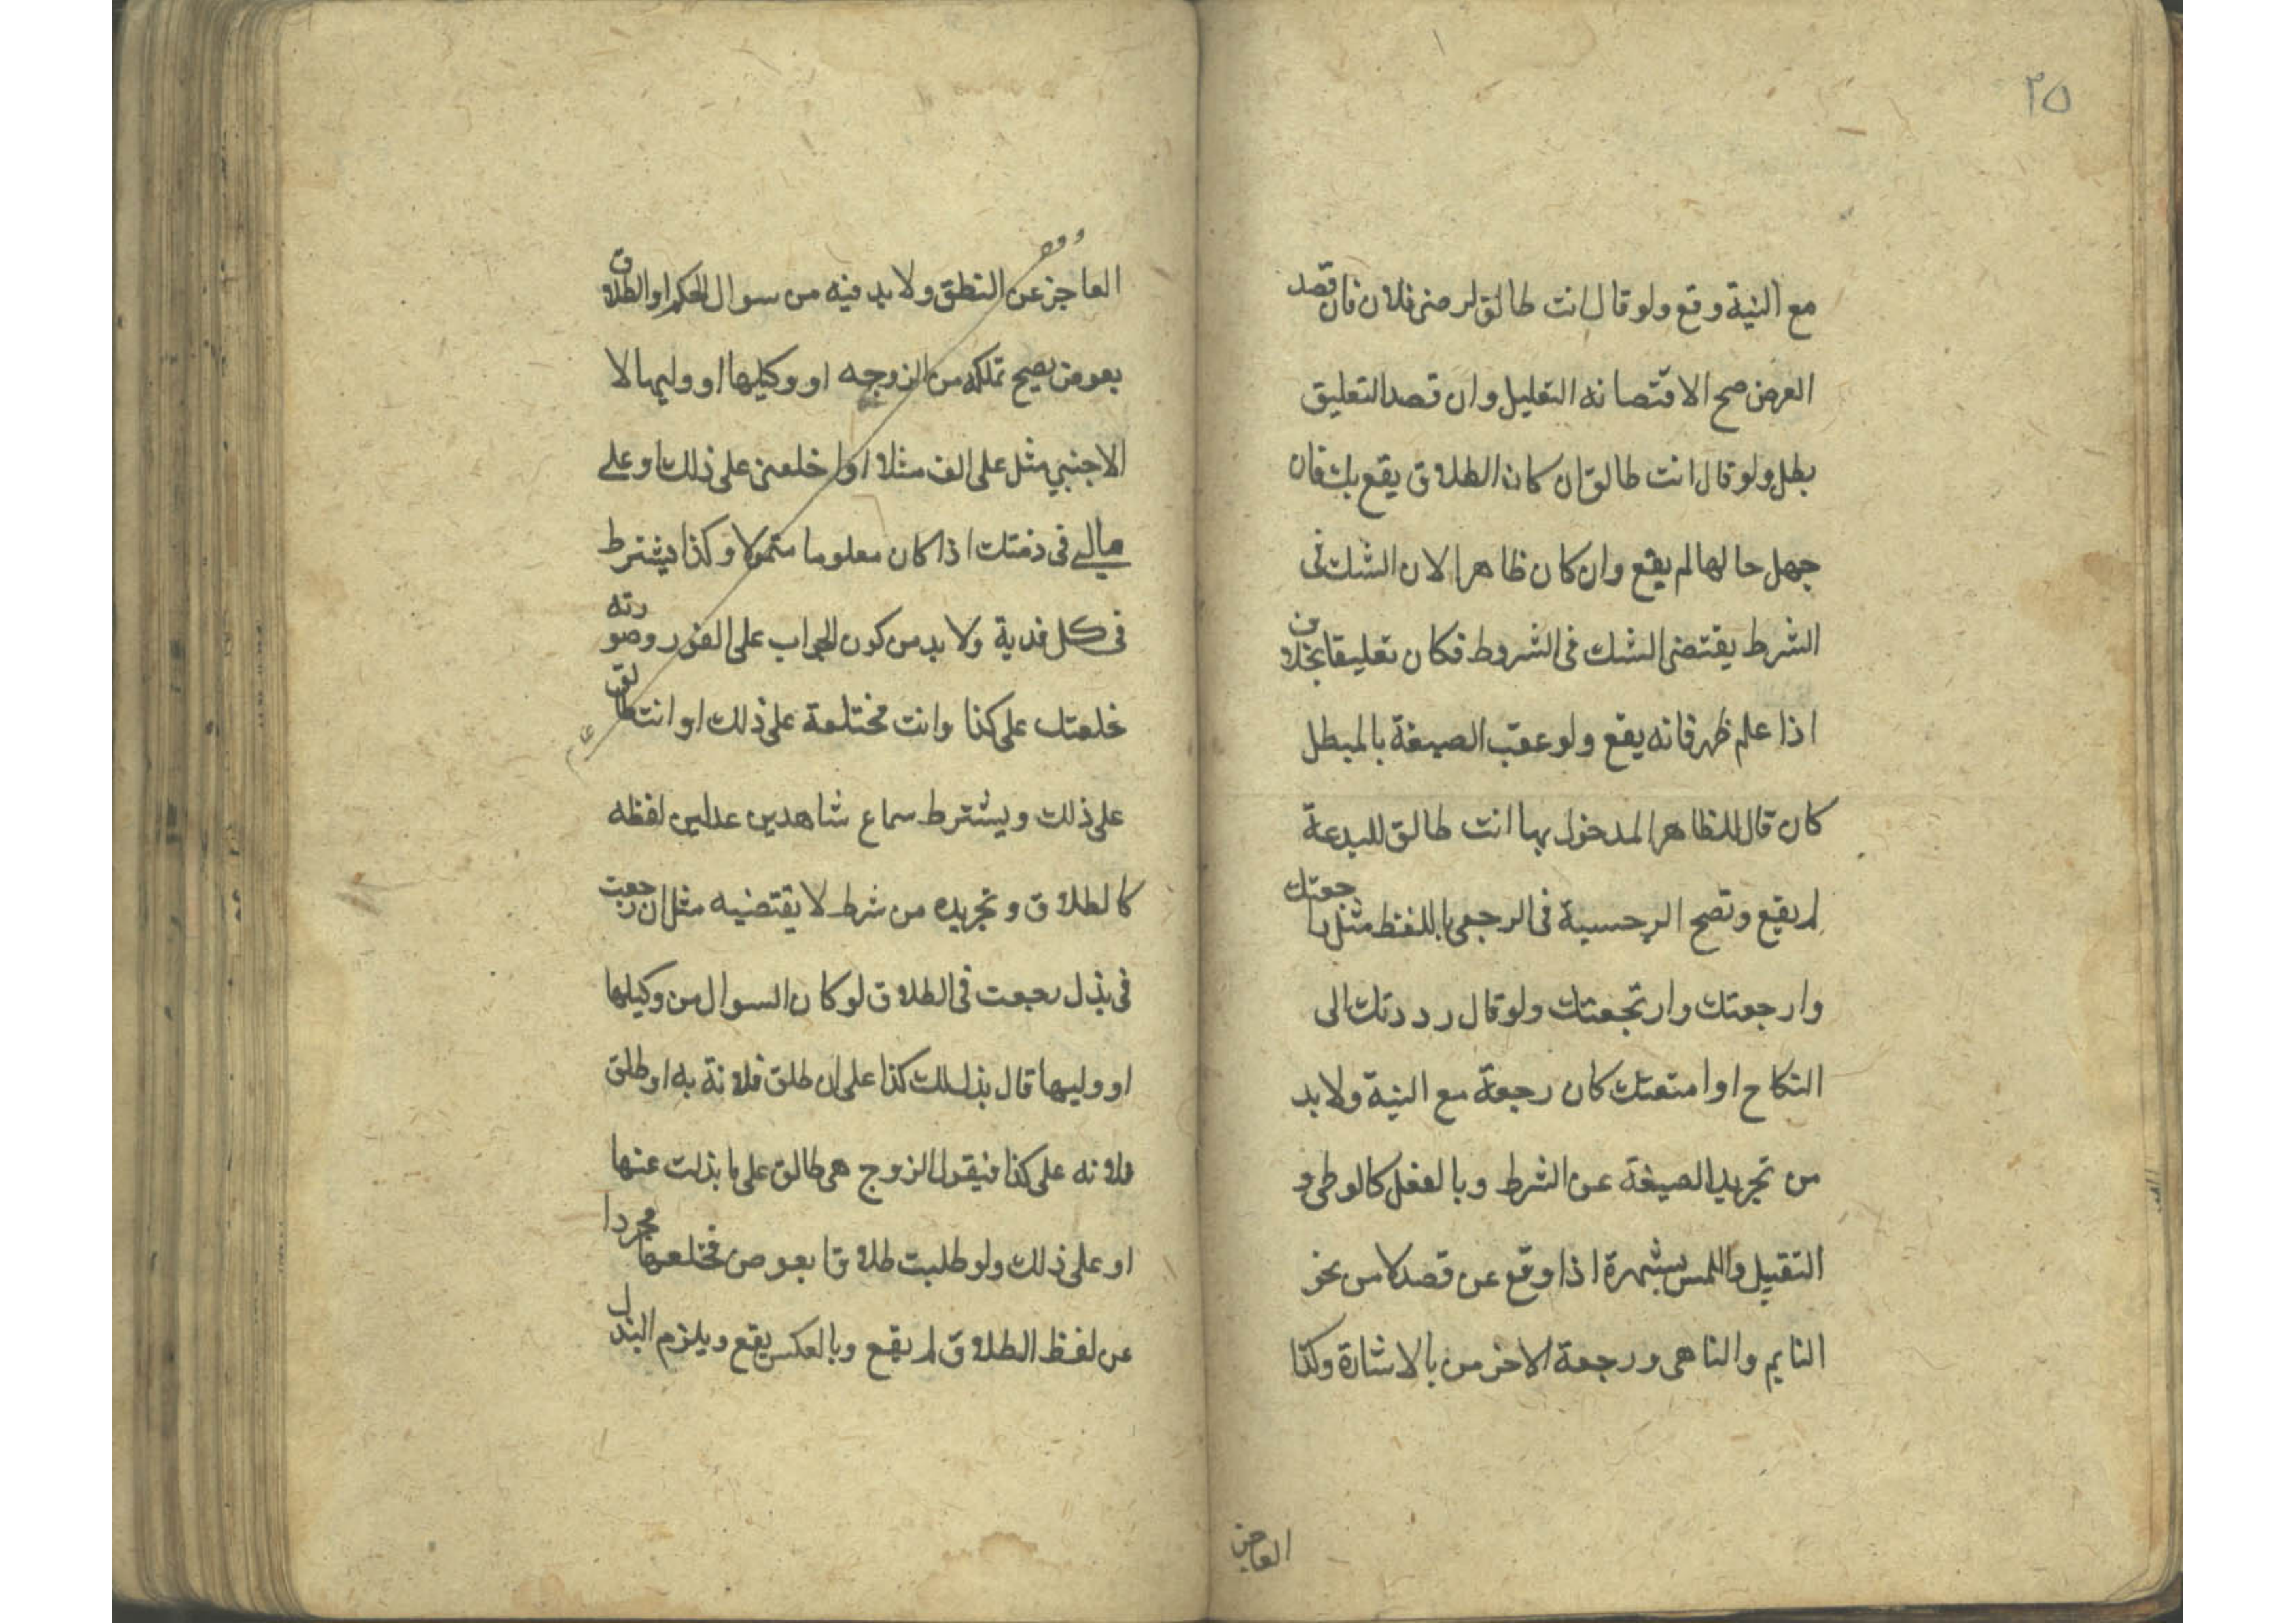 ٢٥
مع النية وقع ولو قال انت طالق لرضى فلان فان قصد
الغرض صح الاقتصانه التعليل وان قصد التعليق
بطل ولو قال انت طالق ان كان الطلاق يقع بك فان
جهل حالها لم يقع وان كان ظاهرا لان الشك فى
الشرط يقتضى الشك فى الشروط فكان تعليقا بخلاف
اذا علم ظهر فانه يقع ولو عقب الصيغة بالمبطل
كان قال للظاهر المدخول بها انت طالق للبدعة
لم يقع وتصح فى الرجعى باللفظ مثل راجعتك
وارجعتك وارتجعتك ولو قال رددتك الى
النكاح او امتعتك كان رجعة مع النية ولا بد
من تجريد الصيغة عن الشرط وبالفعل كالوطى و
التقبيل واللمس بشهرة اذا وقع عن قصد لا من نحو
النايم والناهى ورجعة الاخرس بالاشارة وكذا
العاجز
العاجز عن النطق ولا بد فيه من سوال الحكم او الطلاق
بعوض يصح تملكه من الزوجه او وكيلها او وليها لا
الاجنبي مثل على الف مثلا او اخلعنى على ذلك او على
مالى فى ذمتك اذا كان معلوما متمولا وكذا يشترط
فى كل فدية ولا بد من كون الجواب على الفور وصورته
خلعتك على كذا وانت مختلعة على ذلك او انت طالق
على ذلك ويشترط سماع شاهدين عدلين لفظه
كالطلاق وتجريده من شرط لا يقتضيه مثل ان رجعت
فى بذل رجعت فى الطلاق لو كان السوال من وكيلها
او وليها قال بذلت لك كذا على ان طلق فلانة به او طلق
فلانه على كذا فيقول الزوج هى طالق على ما بذلت عنها
او على ذلك ولو طلبت طلاقا بعوض فخلعها مجردا
عن لفظ الطلاق لم يقع وبالعكس يقع ويلزم البذل